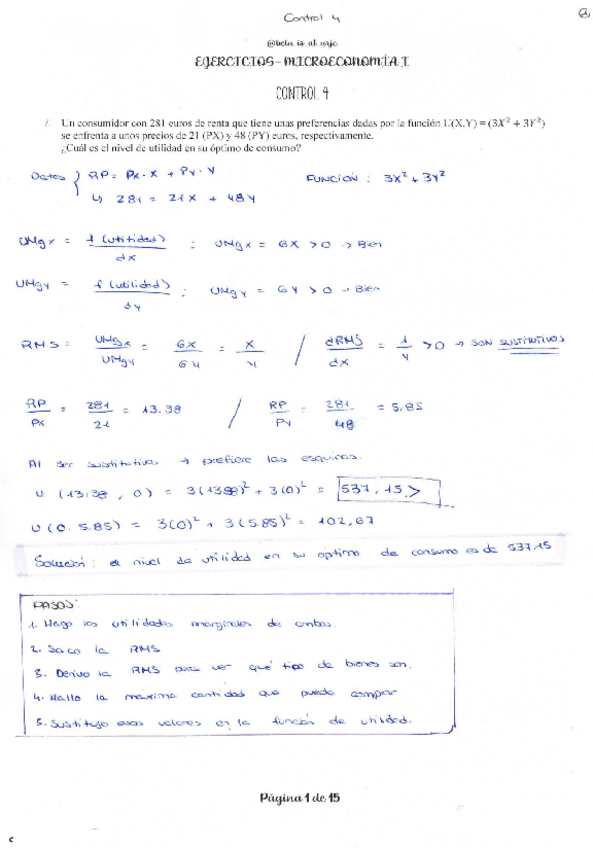 Control 4
EJERCICIOS-MICROECONOMÍA I
CONTROL 4
1. Un consumidor con 281 euros de renta que tiene unas preferencias dadas por la función U(X,Y) = (3X² + 3Y²)
se enfrenta a unos precios de 21 (PX) y 48 (PY) euros, respectivamente.
¿Cuál es el nivel de utilidad en su óptimo de consumo?
Datos } RP = Px · X + Py · Y FUNCIÓN : 3X² + 3Y²
↳ 281 = 21X + 48Y
UMgx = f (utilidad) / dx : UMgx = 6X > 0 → Bien
UMgy = f (utilidad) / dy : UMgy = 6Y > 0 → Bien
RMS = UMgx / UMgy = 6X / 6Y = X / Y / dRMS / dx = 1 / Y > 0 → SON SUSTITUTIVOS
RP / Px = 281 / 21 = 13.38 / RP / Py = 281 / 48 = 5,85
Al ser sustitutivos → prefiere las esquinas.
U (13.38 , 0) = 3(13.38)² + 3(0)² = 537,15 >
U (0, 5.85) = 3(0)² + 3(5.85)² = 102,67
Solución: el nivel de utilidad en su óptimo de consumo es de 537,15
PASOS:
1. Hago las utilidades marginales de ambos.
2. Saco la RMS
3. Derivo la RMS para ver qué tipo de bienes son.
4. Hallo la máxima cantidad que puedo comprar
5. Sustituyo esos valores en la función de utilidad.
Página 1 de 15